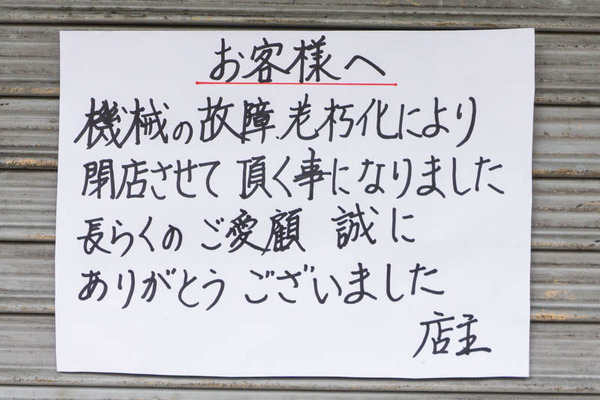 お客様へ
機械の故障、老朽化により
閉店させて頂く事になりました
長らくのご愛顧 誠に
ありがとうございました
店主